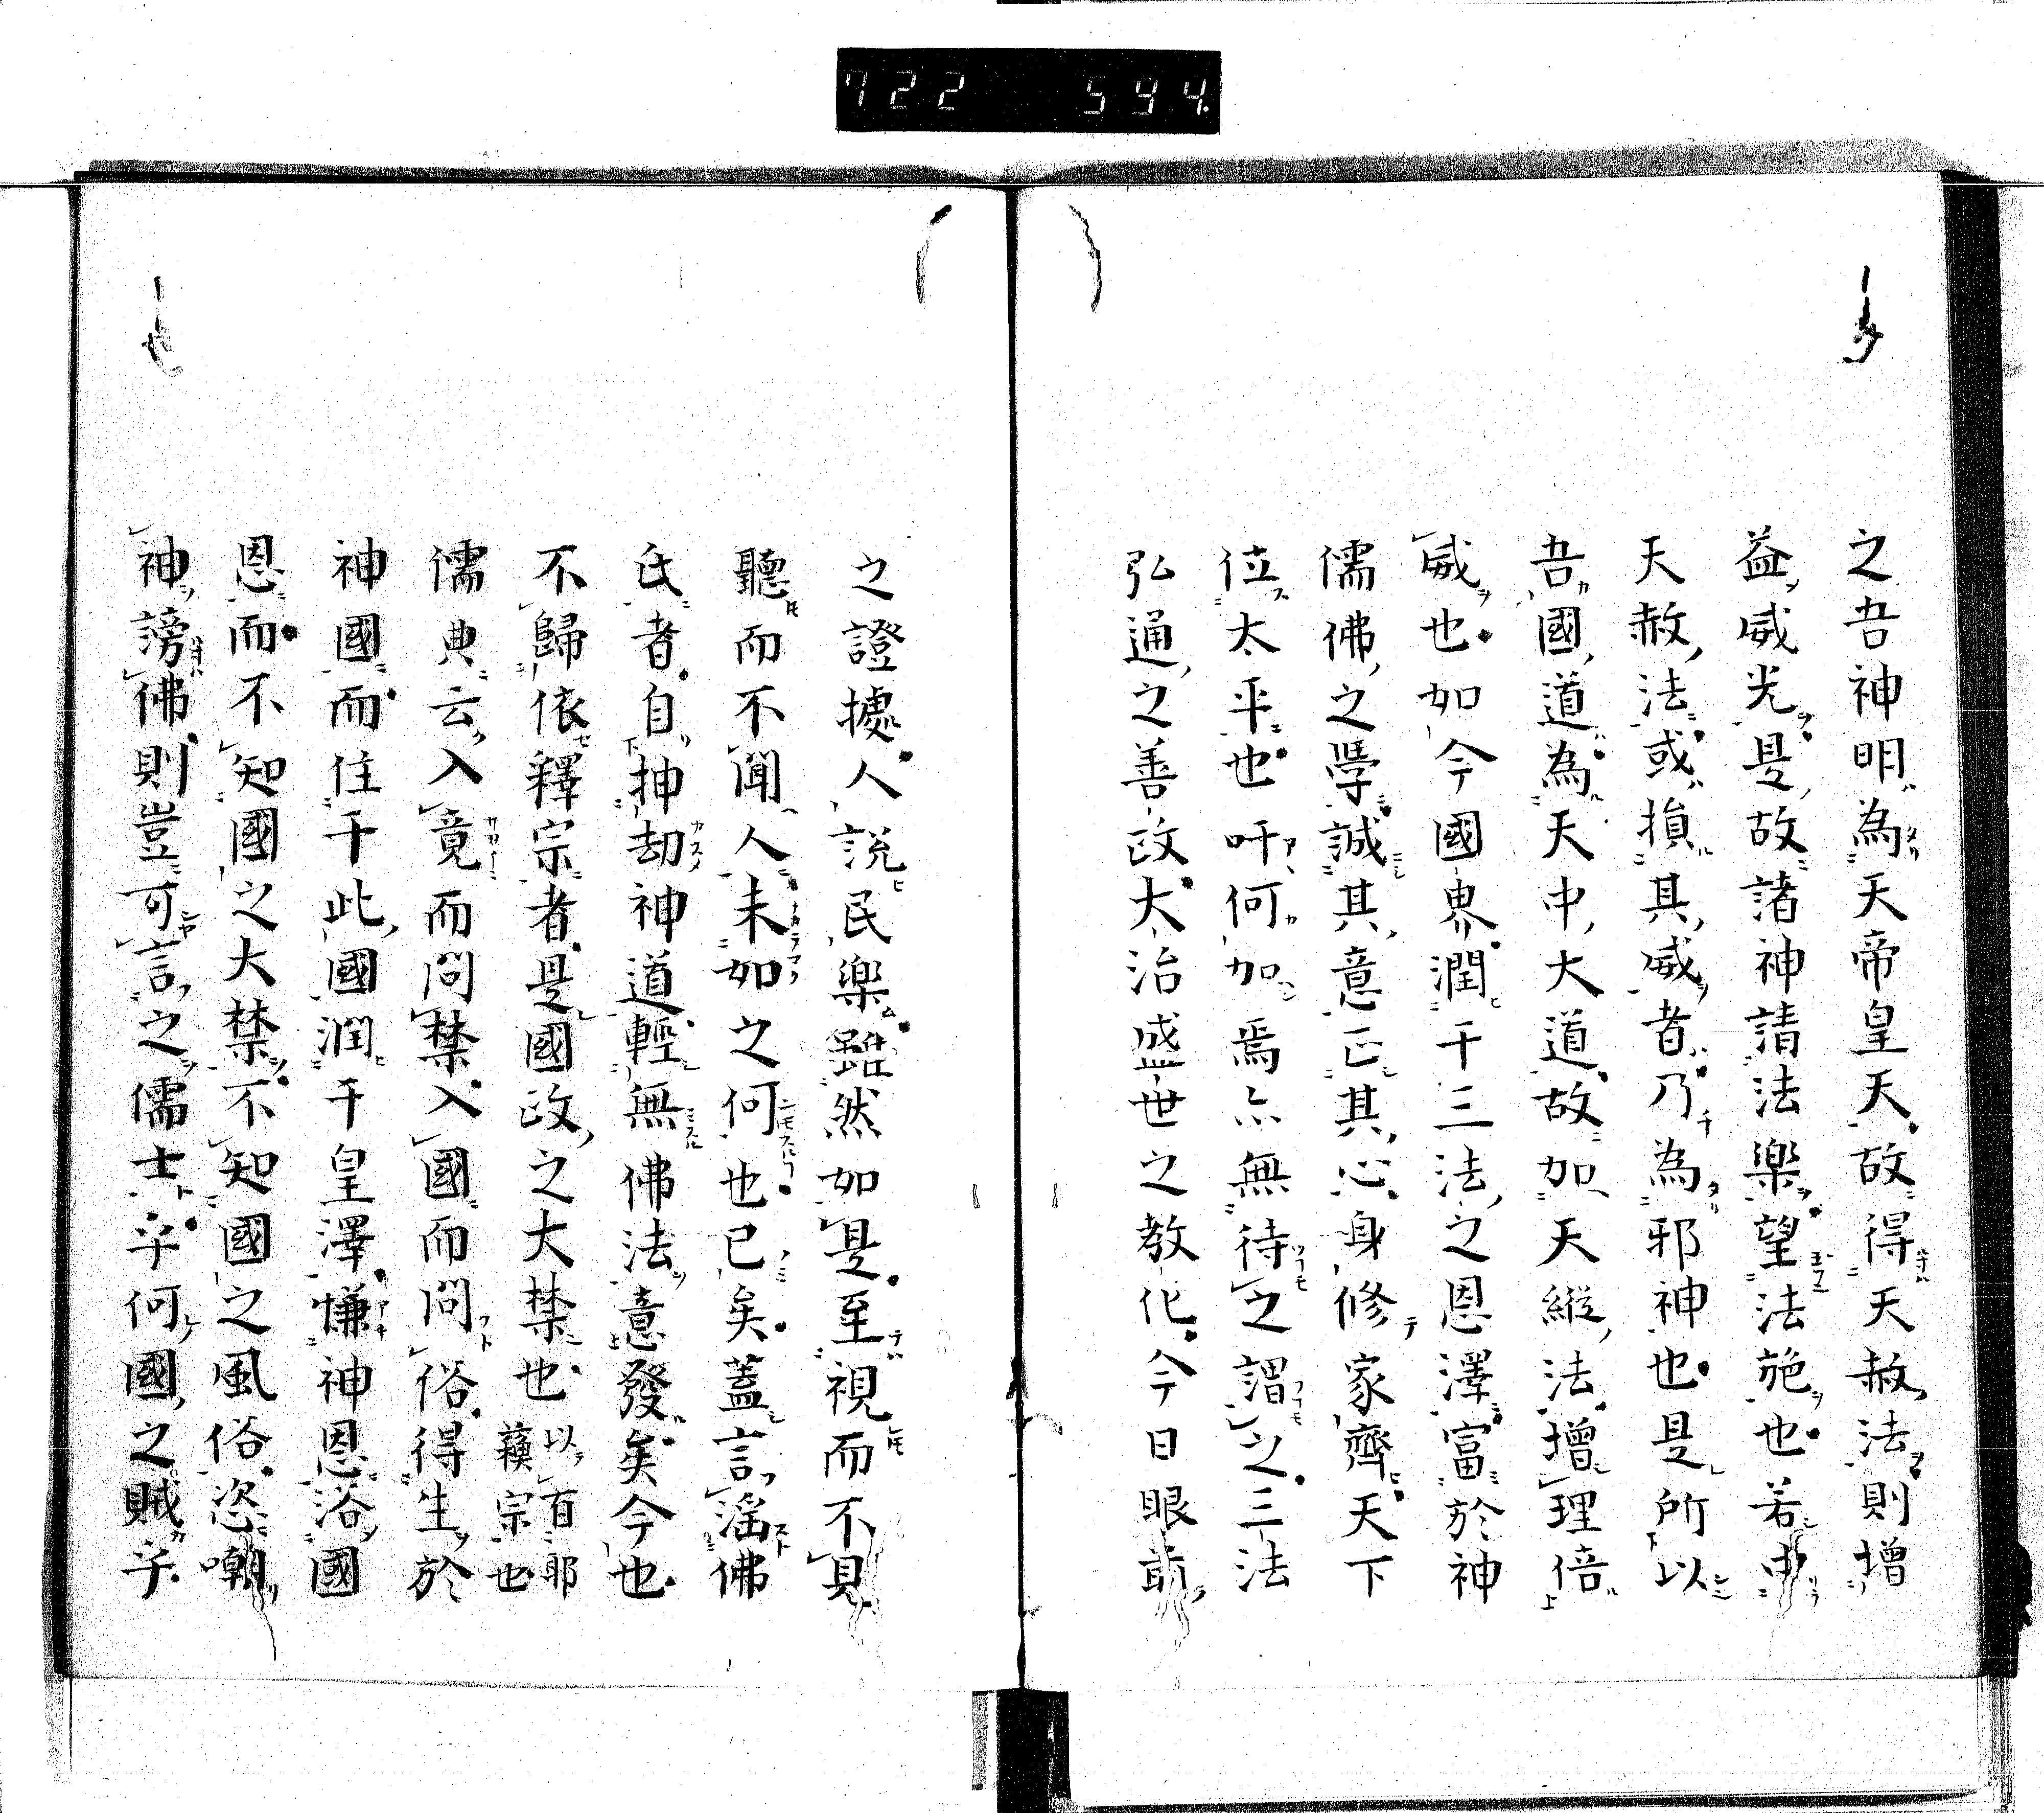 722 594
之吾神明為天帝皇天故得天赦法則增
益威光是故諸神請法樂望法施也若由
天赦法或損其威者乃為邪神也是所以
吾國道為天中大道故加天縱法增理倍
威也如今國界潤于三法之恩澤富於神
儒佛之學誠其意正其心身修家齊天下
位太平也吁何加焉亦無待之謂之三法
弘通之善政大治盛世之教化今日眼前
之證據人說民樂雖然如是至視而不見
聽而不聞人未如之何也已矣蓋言滛佛
氏者自抻劫神道輕無佛法意發矣今也
不歸依釋宗者是國政之大禁也以有耶
蘓宗也
儒典云入竟而問禁入國而問俗得生於
神國而住于此國潤于皇澤慊神恩浴國
恩而不知國之大禁不知國之風俗恣嘲
神謗佛則豈可言之儒士乎何國之賊乎